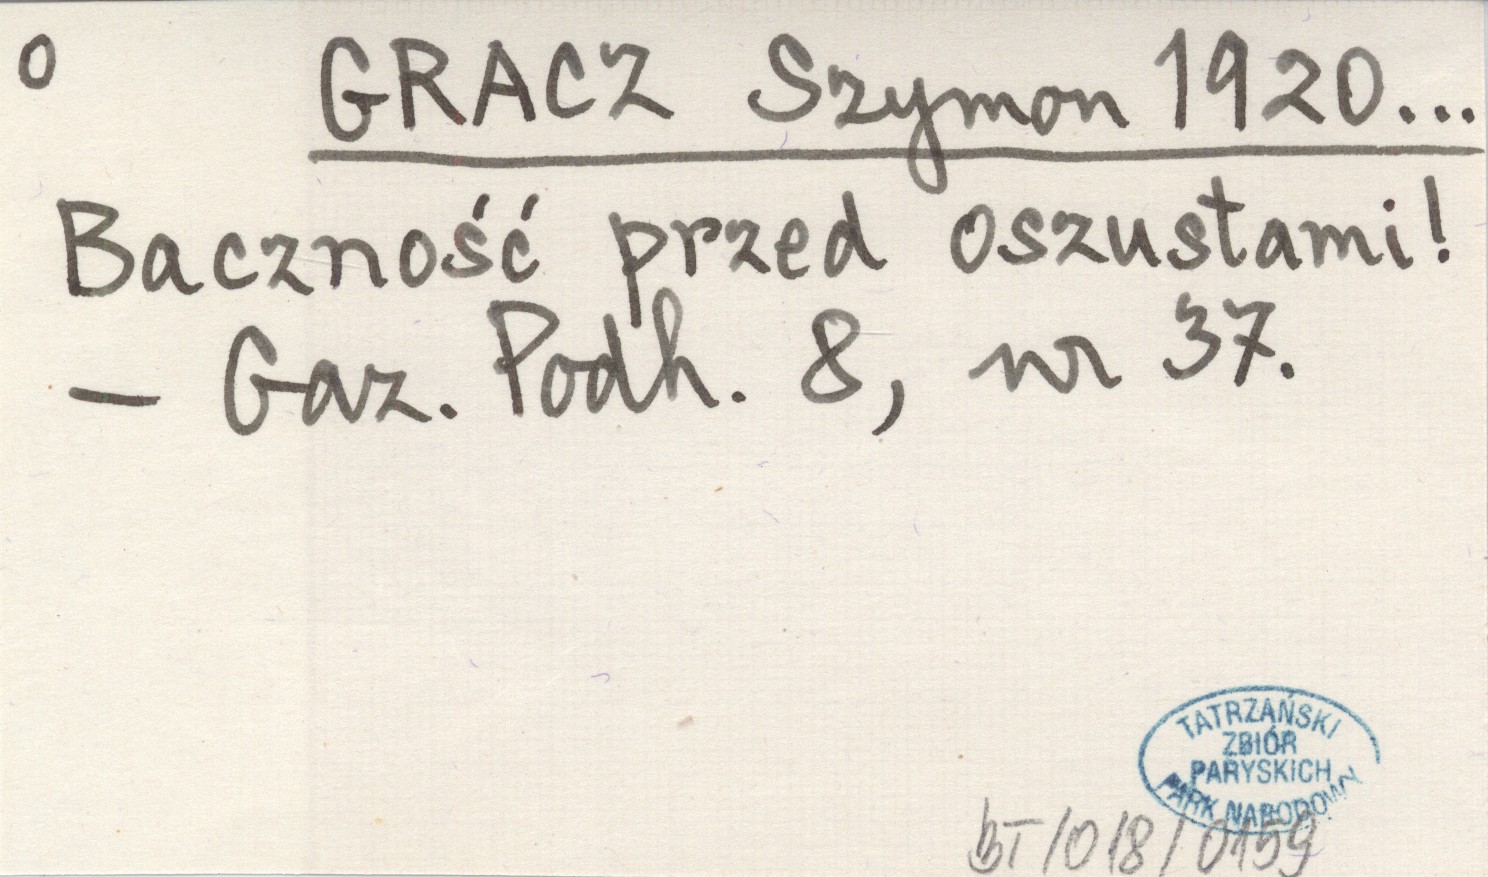 o GRACZ Szymon 1920...
Baczność przed oszustami!
— Gaz. Podh. 8, nr 37.
TATRZAŃSKI
ZBIÓR
PARYSKICH
PARK NARODOWY
BT/018/0159